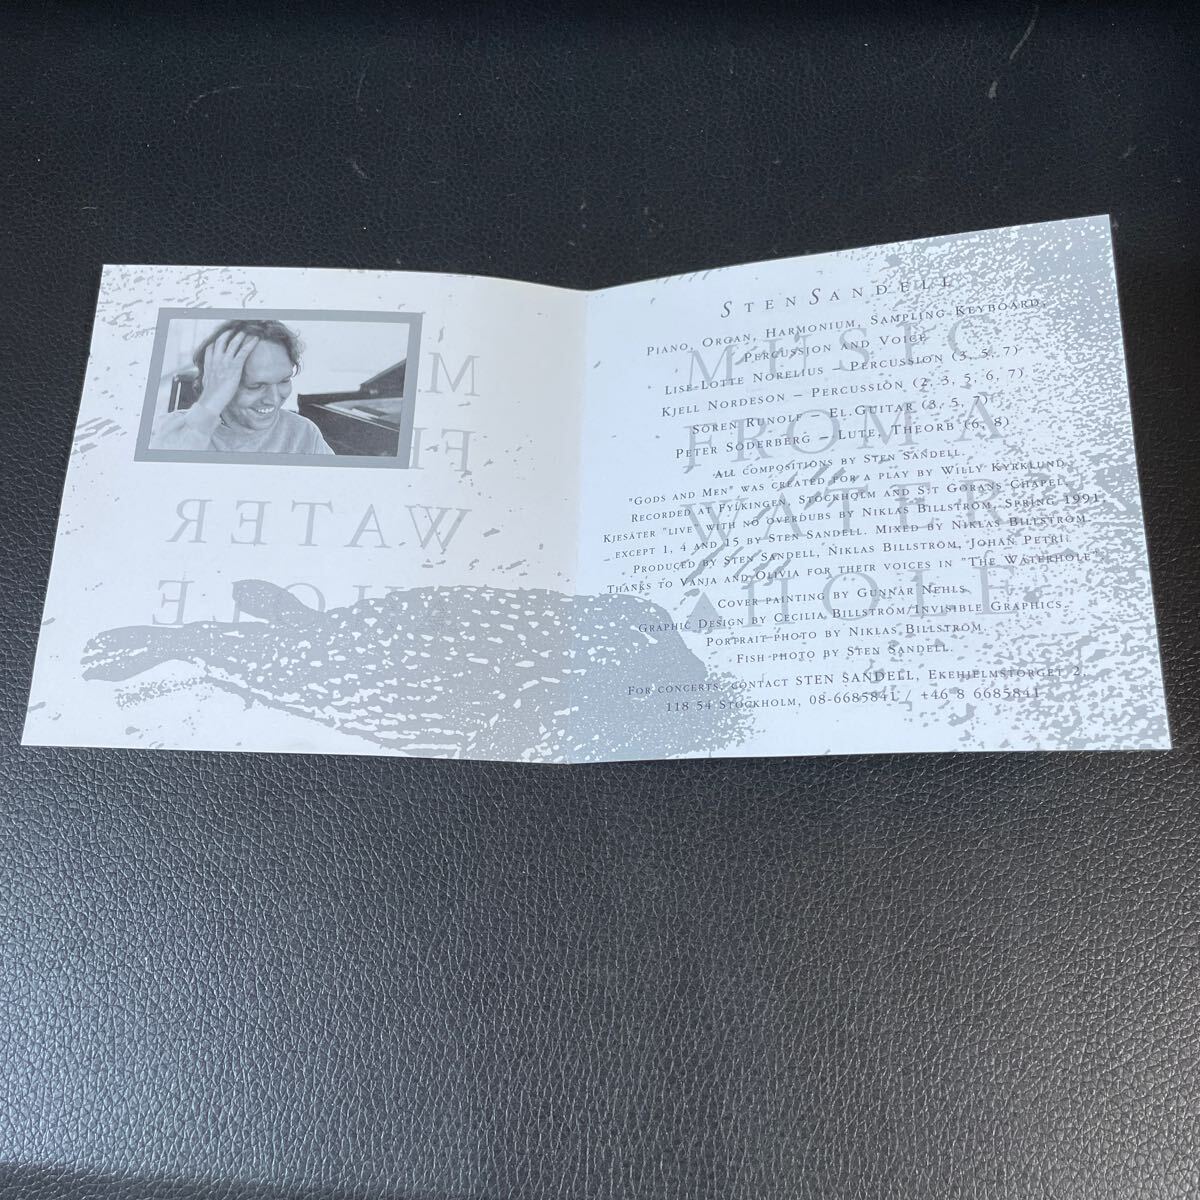 M
FI
WATER
HOLE
MUSIC
FROM A
WATER
HOLE
STEN SANDELL
PIANO, ORGAN, HARMONIUM, SAMPLING KEYBOARD,
PERCUSSION AND VOICE
LISE-LOTTE NORELIUS – PERCUSSION (3, 5, 7)
KJELL NORDESON – PERCUSSION (2, 3, 5, 6, 7)
SÖREN RUNOLF – EL.GUITAR (3, 5, 7)
PETER SÖDERBERG – LUTE, THEORB (6, 8)
ALL COMPOSITIONS BY STEN SANDELL.
"GODS AND MEN" WAS CREATED FOR A PLAY BY WILLY KYRKLUND.
RECORDED AT FYLKINGEN, STOCKHOLM AND S:T GÖRANS CHAPEL,
KJESÄTER "LIVE" WITH NO OVERDUBS BY NIKLAS BILLSTRÖM, SPRING 1991.
EXCEPT 1, 4 AND 15 BY STEN SANDELL. MIXED BY NIKLAS BILLSTRÖM.
PRODUCED BY STEN SANDELL, NIKLAS BILLSTRÖM, JOHAN PETRI.
THANKS TO VANJA AND OLIVIA FOR THEIR VOICES IN "THE WATERHOLE".
COVER PAINTING BY GUNNAR NEHLS
GRAPHIC DESIGN BY CECILIA BILLSTRÖM/INVISIBLE GRAPHICS
PORTRAIT PHOTO BY NIKLAS BILLSTRÖM
FISH PHOTO BY STEN SANDELL.
FOR CONCERTS, CONTACT STEN SANDELL, EKEHJELMSTORGET 2,
118 54 STOCKHOLM, 08-6685841 / +46 8 6685841